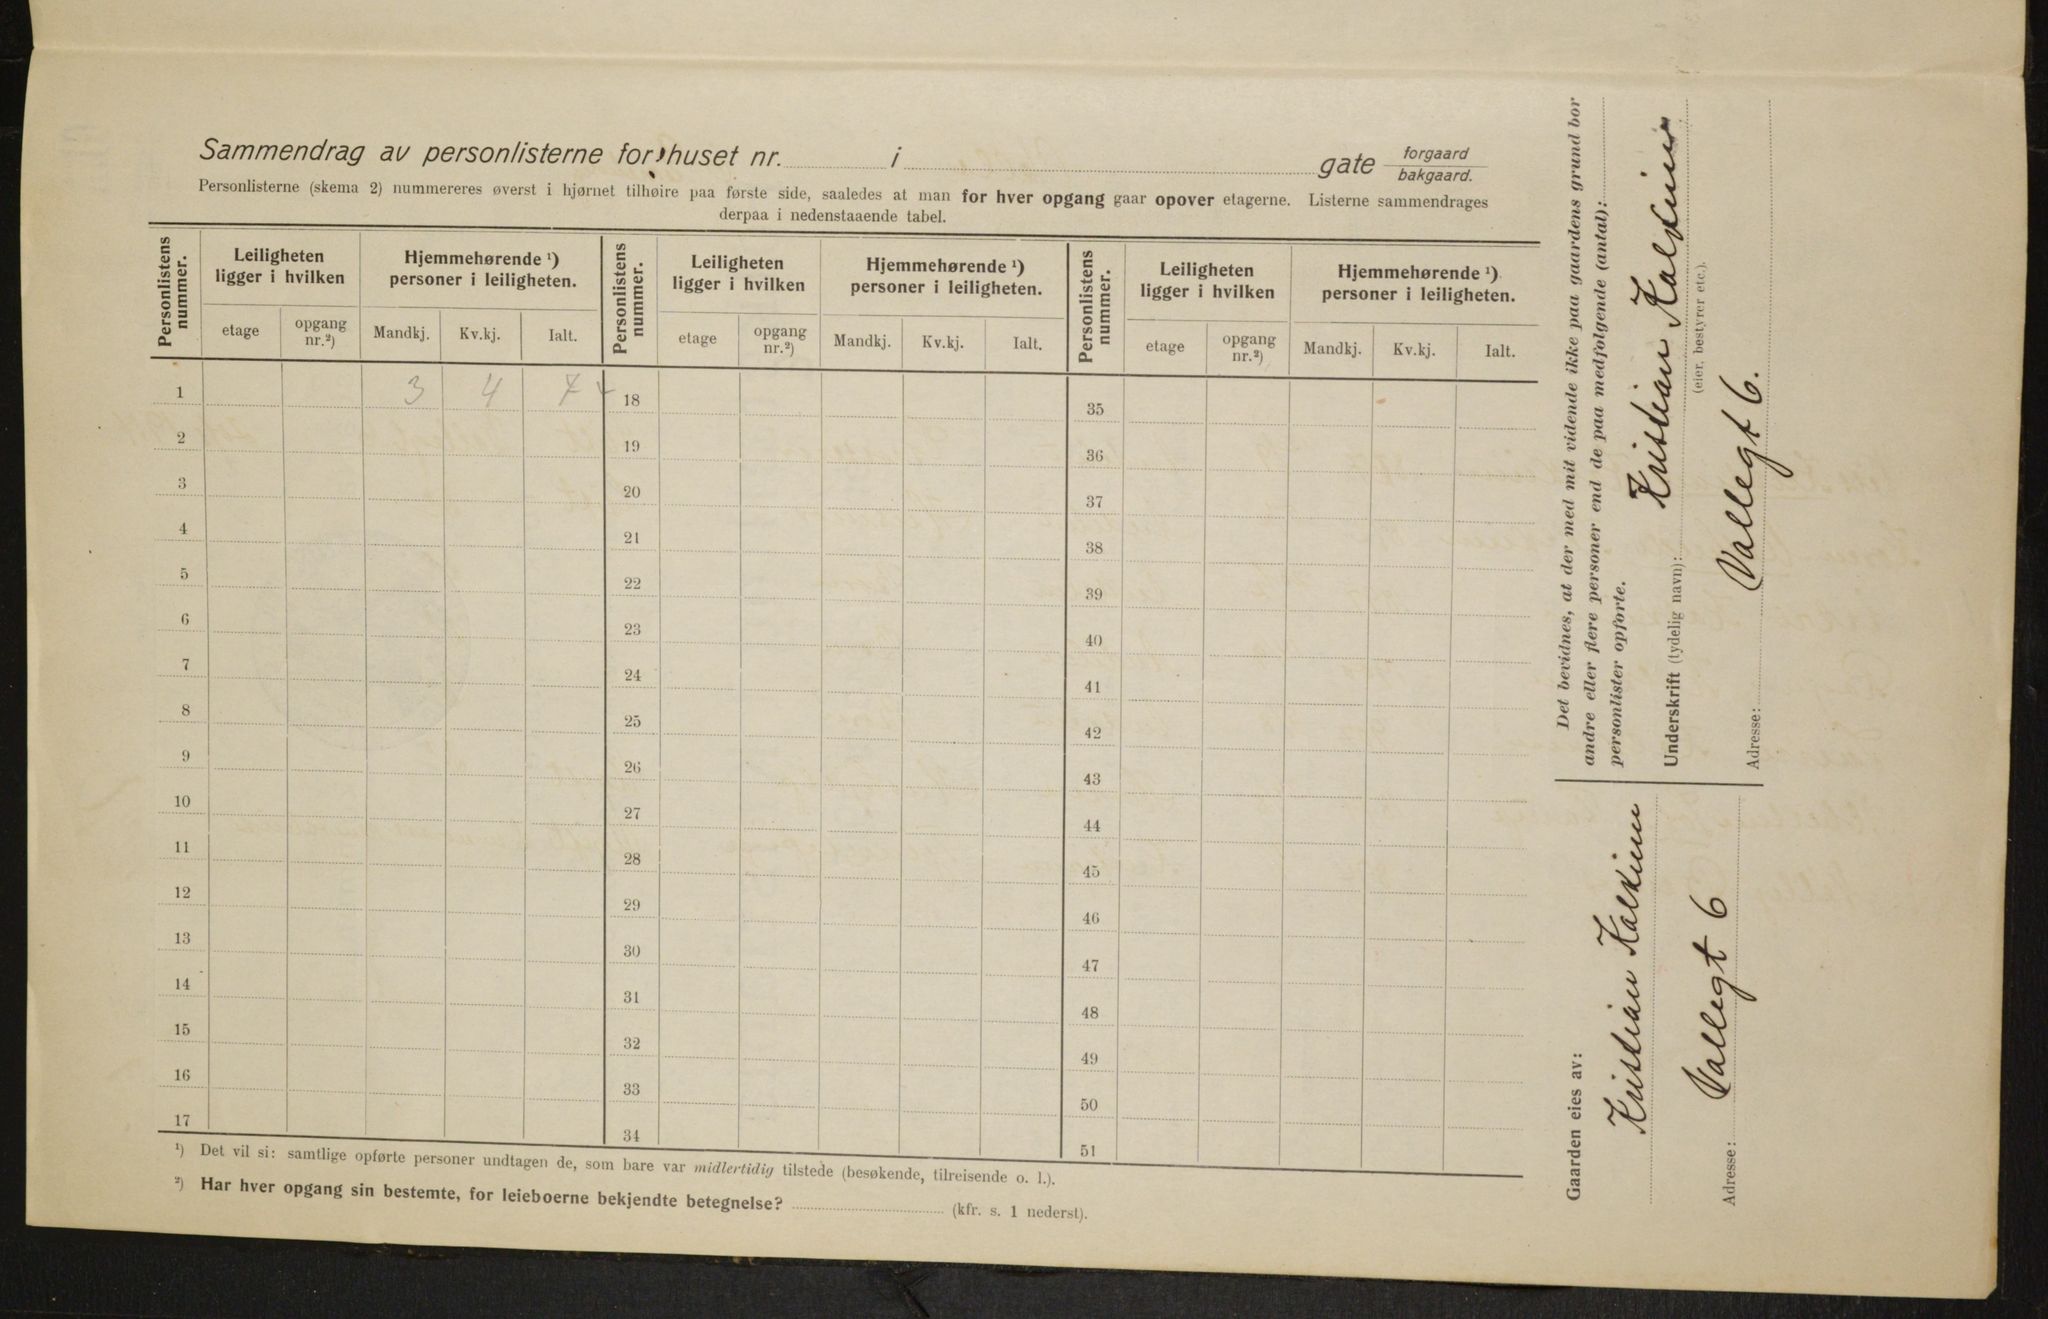 Sammendrag av personlisterne for huset nr. i gate forgaard bakgaard.
Personlisterne (skema 2) nummereres øverst i hjørnet tilhøire paa første side, saaledes at man for hver opgang gaar opover etagerne. Listerne sammendrages
derpaa i nedenstaaende tabel.
Personlistens nummer.
Leiligheten ligger i hvilken
Hjemmehørende ¹) personer i leiligheten.
Personlistens nummer.
Leiligheten ligger i hvilken
Hjemmehørende ¹) personer i leiligheten.
Personlistens nummer.
Leiligheten ligger i hvilken
Hjemmehørende ¹) personer i leiligheten.
etage opgang nr.²) Mandkj. Kv.kj. Ialt. etage opgang nr.²) Mandkj. Kv.kj. Ialt. etage opgang nr.²) Mandkj. Kv.kj. Ialt.
1 3 4 7 18 35
2 19 36
3 20 37
4 21 38
5 22 39
6 23 40
7 24 41
8 25 42
9 26 43
10 27 44
11 28 45
12 29 46
13 30 47
14 31 48
15 32 49
16 33 50
17 34 51
¹) Det vil si: samtlige opførte personer undtagen de, som bare var midlertidig tilstede (besøkende, tilreisende o. l.).
²) Har hver opgang sin bestemte, for leieboerne bekjendte betegnelse? (kfr. s. 1 nederst).
Det bevidnes, at der med mit vidende ikke paa gaardens grund bor
andre eller flere personer end de paa medfølgende (antal):
personlister opførte.
Kristian
Underskrift (tydelig navn):
(eier, bestyrer etc.).
Vallegt 6.
Adresse:
Gaarden eies av:
Kristian
Vallegt 6
Adresse: